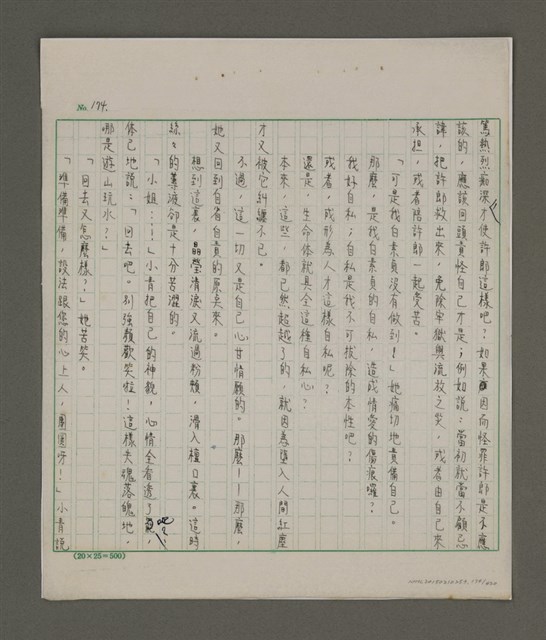 No. 194.
篤熱烈痴深才使許郎這樣吧?如果因而怪罪許郎是不應
該的,應該回頭責怪自己才是;例如說:當初就當不顧忌
諱,把許郎放出來,免除牢獄與流放之災,或者由自己來
承担,或者陪許郎一起受苦。
「可是我白素貞沒有做到!」她痛切地責備自己。
那麼,是我白素貞的自私,造成情愛的傷痕囉?
我好自私;自私是我不可拔除的本性吧?
或者,成形為人才這樣自私呢?
還是,生命体就具全這種自私心?
本來,這些,都已然超越了的,就因為墮入人間紅塵
才又被它糾纏不已。
不過,這一切又是自己心甘情願的。那麼——那麼,
她又回到自省自責的原矣來。
想到這裏,晶瑩清淚又流過粉頰,滑入檀口裏。這時
絲々的薄液卻是十分苦澀的。
「小姐…!」小青把自己的神貌,心情全看透了吧?,
倏已地說:「回去吧。別強顏歡笑啦!這樣失魂落魄地,
哪是遊山玩水?」
「回去又怎麼樣?!」她苦笑。
「準備準備,設法跟您的心上人,團圓呀!」小青說
(20×25=500)